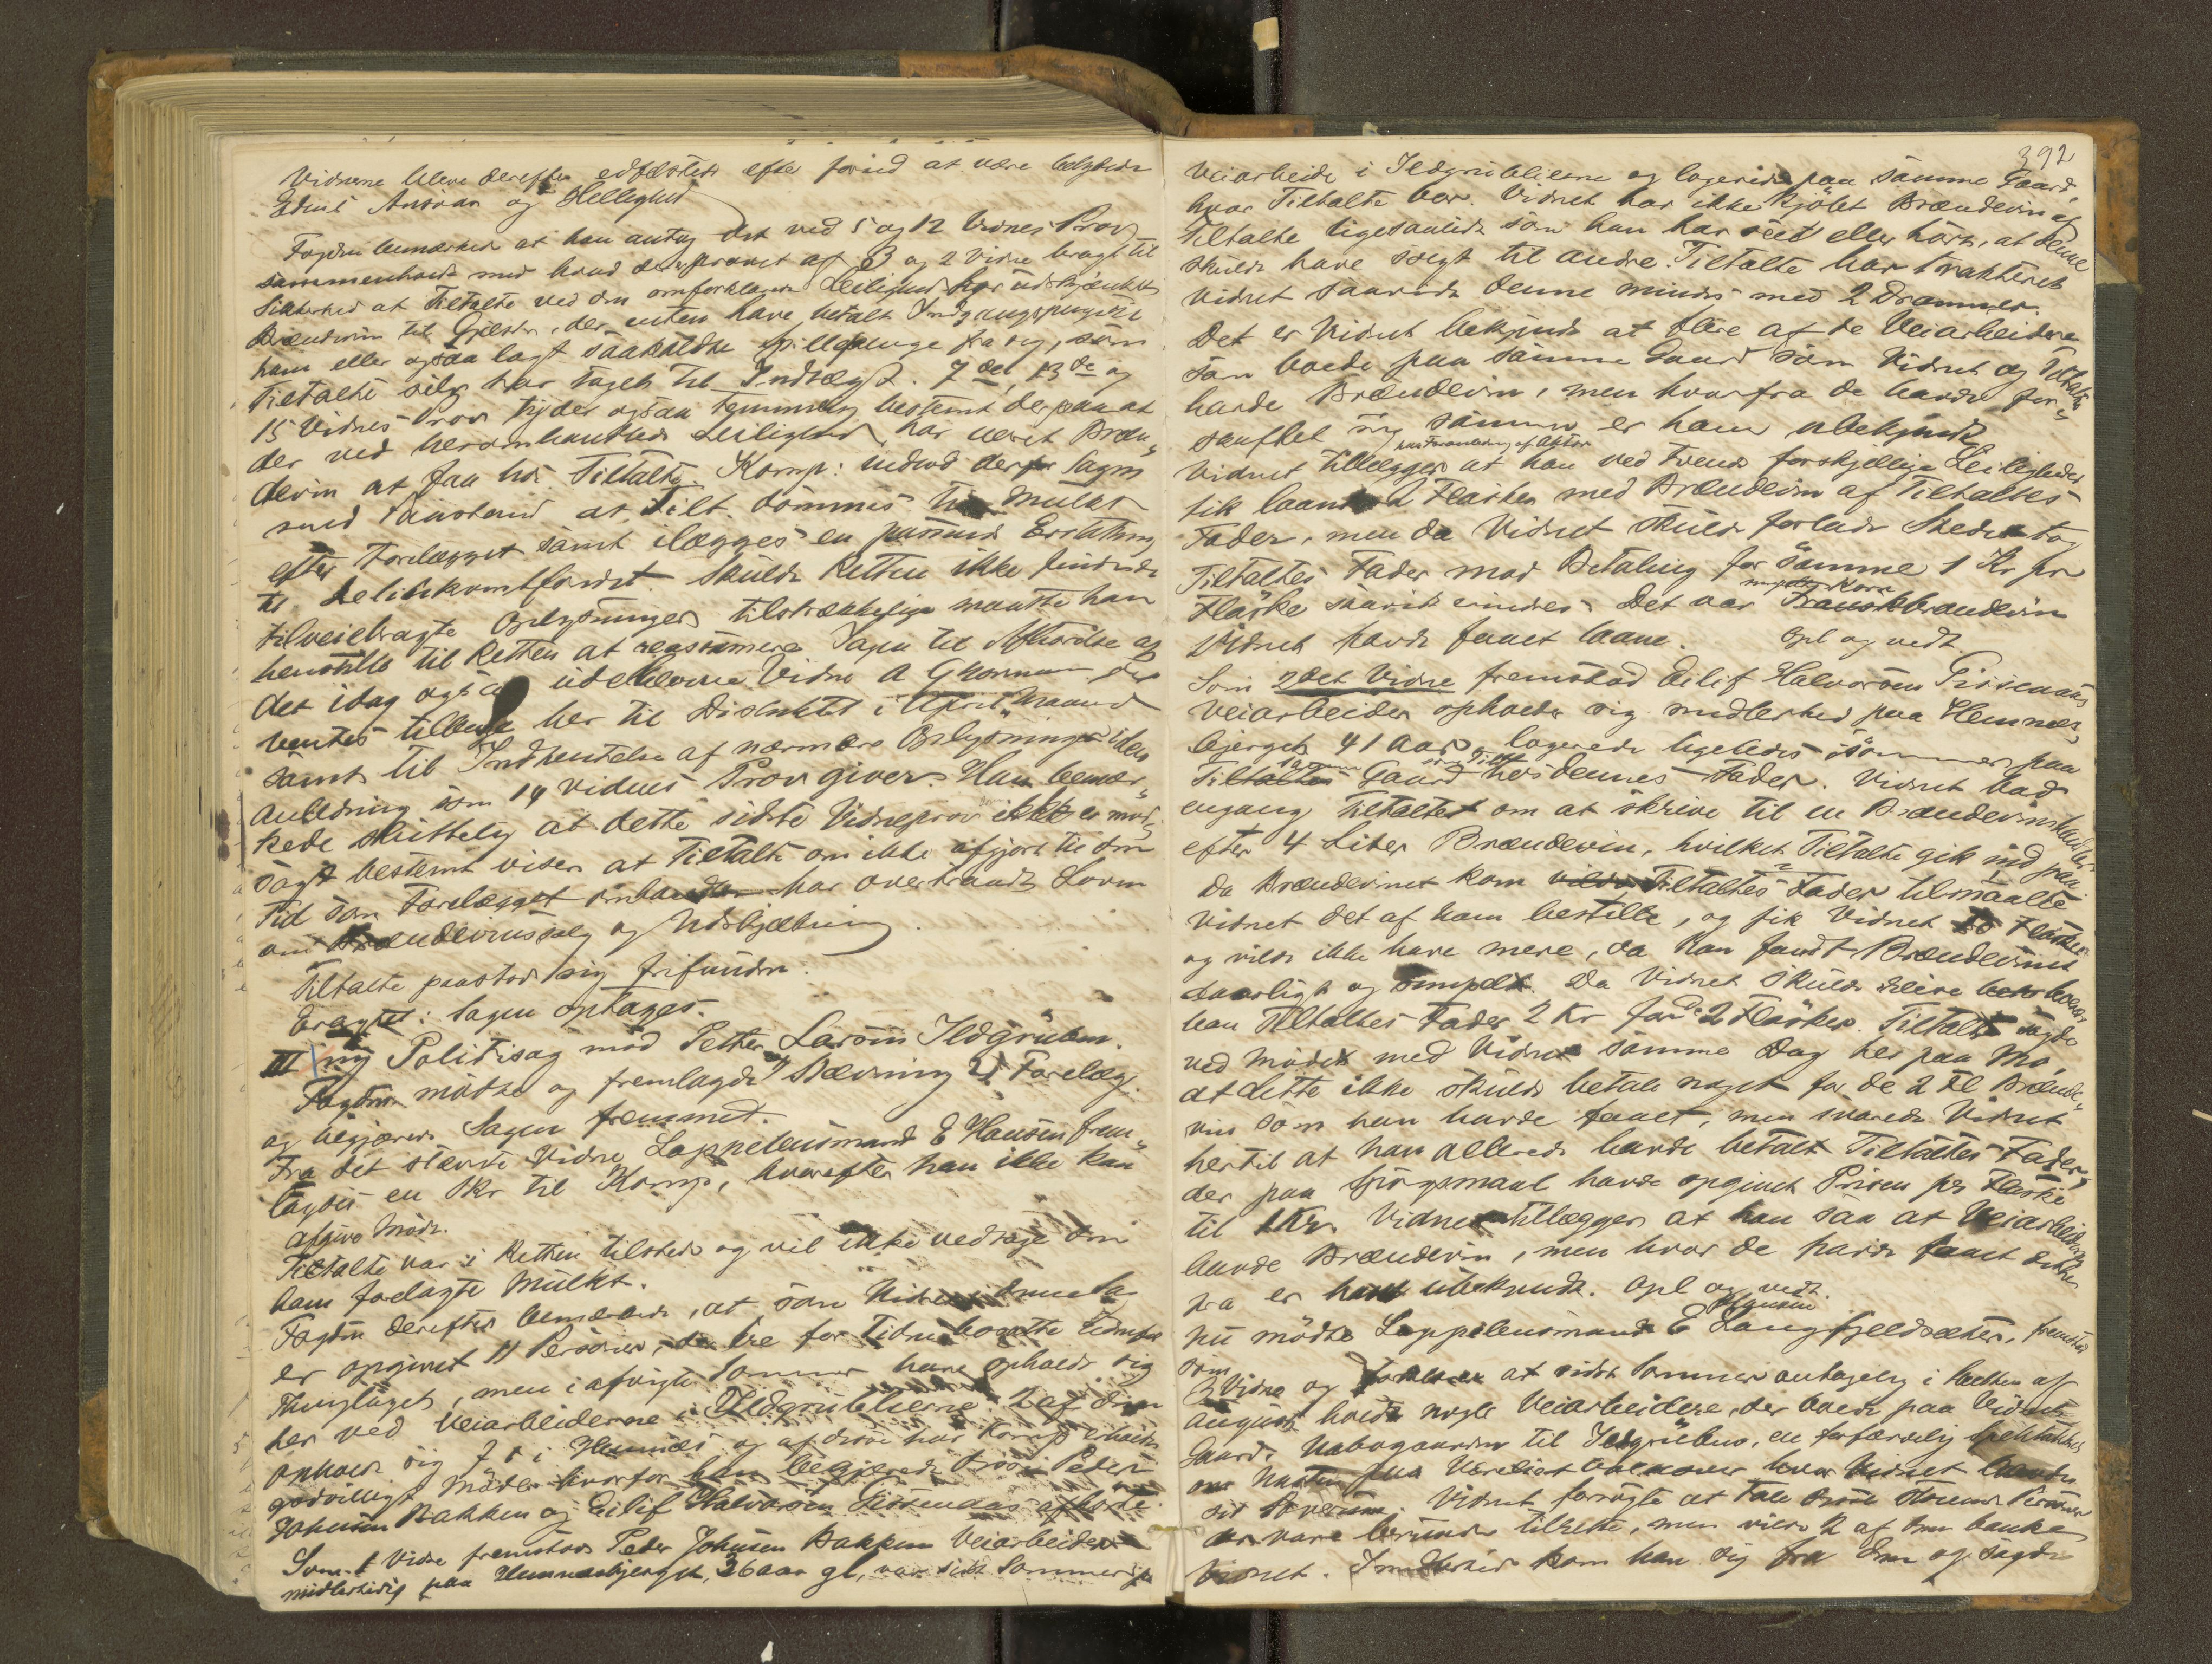 Vidnerne bleve derefter edfæstede efter forud at være betydede
Edens Ansvar og Hellighed
Fogden bemærkede at han antog det ved 5 og 12 Vidnes Prov
sammenholdt med hvad der er provet af 3 og 2 Vidne bragt til
Sikkerhed at Tiltalte ved den omforklarede Leilighed har udskjænket
Brændevin til Gjester, der enten have betalt Indgangspenge til
ham eller ogsaa lagt saakaldte Spillepenge fra sig, som
Tiltalte selv har taget til Indtægt. 7de, 13de og
15 Vidnes Prov tyder ogsaa temmelig bestemt derpaa at
der ved heromhandlede Leilighed har været Bræn„
devin at faa hos Tiltalte. Komp: indlod derfor Sagen
med Paastand at Tilt. dømmes til Mulkt
efter Forelægget samt ilægges en passende Erstatning
til Delinkventfondet. Skulde Retten ikke finde de
tilveiebragte Oplysninger tilstrækkelige maatte han
henstille til Retten at reassumere Sagen til Afhørelse af
det idag ogsaa udeblevne Vidne A der
ventes tilbage her til Distriktet i April Maaned
samt til Indhentelse af nærmere Oplysninger
Anledning som 14 Vidnes Prov giver. Han bemær„
kede sluttelig at dette sidste Vidneprov ikke er mod„
sagt bestemt viser at Tiltalte om ikke afgjort til den
Tid som Forelægget omhandler har overtraadt Loven
om Brændevinssalg og Udskjænkning
Tiltalte paastod sig frifunden.
Eragtet: Sagen optages.
III ny Politisag mod Petter Larsen Ildgruben.
Fogden mødte og fremlagde 1) Stævning 2) Forelæg
og begjærede Sagen fremmet.
Fra det stævnte Vidne Lappelensmand E Hansen frem„
lagdes en Skr til Komp, hvorefter han ikke kan
afgive Møde.
Tiltalte var i Retten tilstede og vil ikke vedtage den
ham forelagte Mulkt.
Fogden derefter bemærkede, at som Vidner i denne Sag
er opgivet 11 Personer, der ere for Tiden bosatte udenfor
Thinglaget, men i afvigte Sommer have opholdt sig
her ved Veiarbeiderne i Ildgrublierne. 2 af dem
opholde sig f. t. i Hemnes og af disse har Komp erholdt
godvilligt Møde hvorfor han begjærede disse Peder
Johnsen Bakken og Eilif Halvorsen Tissenaas afhørte.
Som 1 Vidne fremstod Peder Johnsen Bakken Veiarbeider
midlertidig paa Hemnesbjerget, 36 aar gl, var sidst Sommer paa
392
Veiarbeide i Ildgrublierne og logerede paa samme Gaard,
hvor Tiltalte bor. Vidnet har ikke kjøbt Brændevin af
Tiltalte ligesaalidt som han har seet eller hørt, at denne
skulde have solgt til andre. Tiltalte har trakteret
Vidnet saavidt denne mindes med 2 Drammer.
Det er Vidnet bekjendt at flere af de Veiarbeidere
som boede paa samme Gaard som Vidnet og Tiltalte
havde Brændevin, men hvorfra de havde for„
skaffet sig samme er ham ubekjendt
paa Foranledning af Aktor
Vidnet tillægger at han ved tvende forskjellige Leiligheder
fik laant 2 Flasker med Brændevin af Tiltaltes
Fader, men da Vidnet skulde forlade Stedet tog
Tiltaltes Fader mod Betaling for samme 1 Kr pr
Flaske saavidt erindres. Det var Franskbrændevin
Vidnet havde faaet laane. Opl og vedt.
Som 2det Vidne fremstod Eilif Halvorsen Tissenaas
Veiarbeider opholder sig midlertid paa Hemnes„
bjerget 41 Aar, logerede ligeledes i Sommer paa
samme Gaard som Tilt hos dennes Fader. Vidnet bad
engang Tiltalte om at skrive til en Brændevinshandler
efter 4 Liter Brændevin, hvilket Tiltalte gik ind paa.
Da Brændevinet kom Tiltaltes Fader tilmaalte
Vidnet det af ham bestilte, og fik Vidnet Flasker
og vilde ikke have mere, da han fandt Brændevinet
daarligt og simpelt. Da Vidnet skulde reise betalte
han Tiltaltes Fader 2 Kr for de 2 Flasker. Tiltalte sagde
ved Mødet med Vidnet samme Dag her paa Mo,
at dette ikke skulde betale noget for de 2 Fl Brænde„
vin som han havde faaet, men svarede Vidnet
hertil at han allerede havde betalt Tiltaltes Fader,
der paa Spørgsmaal havde opgivet Prisen pr Flaske
til 1 Kr. Vidnet tillægger at han saa at Veiarbeiderne
havde Brændevin, men hvor de havde faaet dette
fra er ham ubekjendt. Opl og vedt.
Nu mødte Lappelensmand E Hansen Langfjeldsæter, fremstod
som
3 Vidne og forklarer at sidst Sommer antagelig i Midten af
August holdt nogle Veiarbeidere, der boede paa Vidnets
Gaard, Nabogaarden til Ildgruben, en forfærdelig Spektakel
om Natten paa Værelset ovenover hvor Vidnet havde
sit Soverum. Vidnet forsøgte at tale disse Personer
der vare berusede tilrette, men vilde 2 af dem banke
Vidnet. Imidlertid kom han sig fra dem og sagde